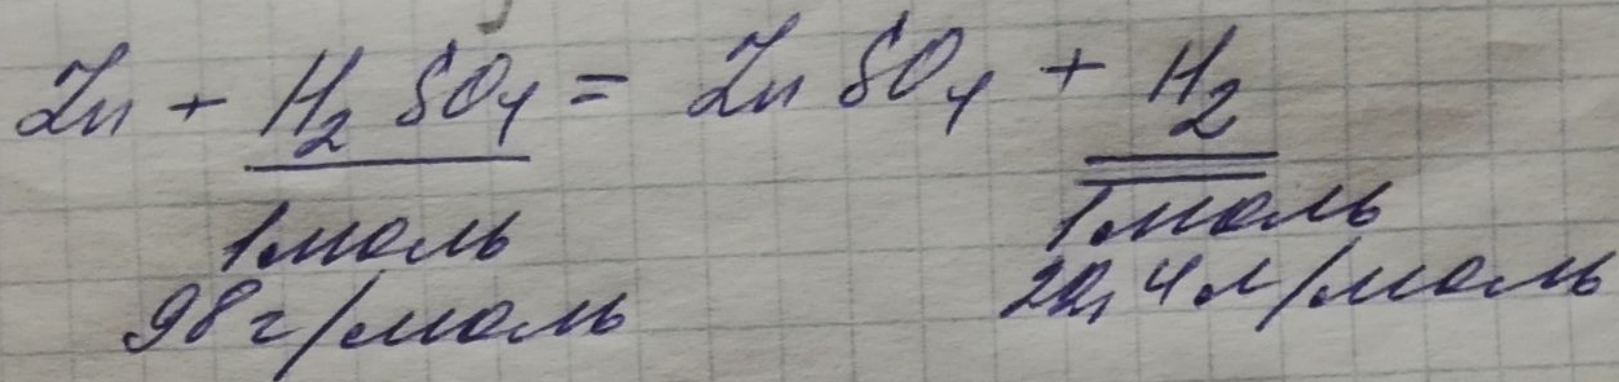 Zn + H₂SO₄ = ZnSO₄ + H₂
1 моль 1 моль
98 г/моль 22,4 л/моль